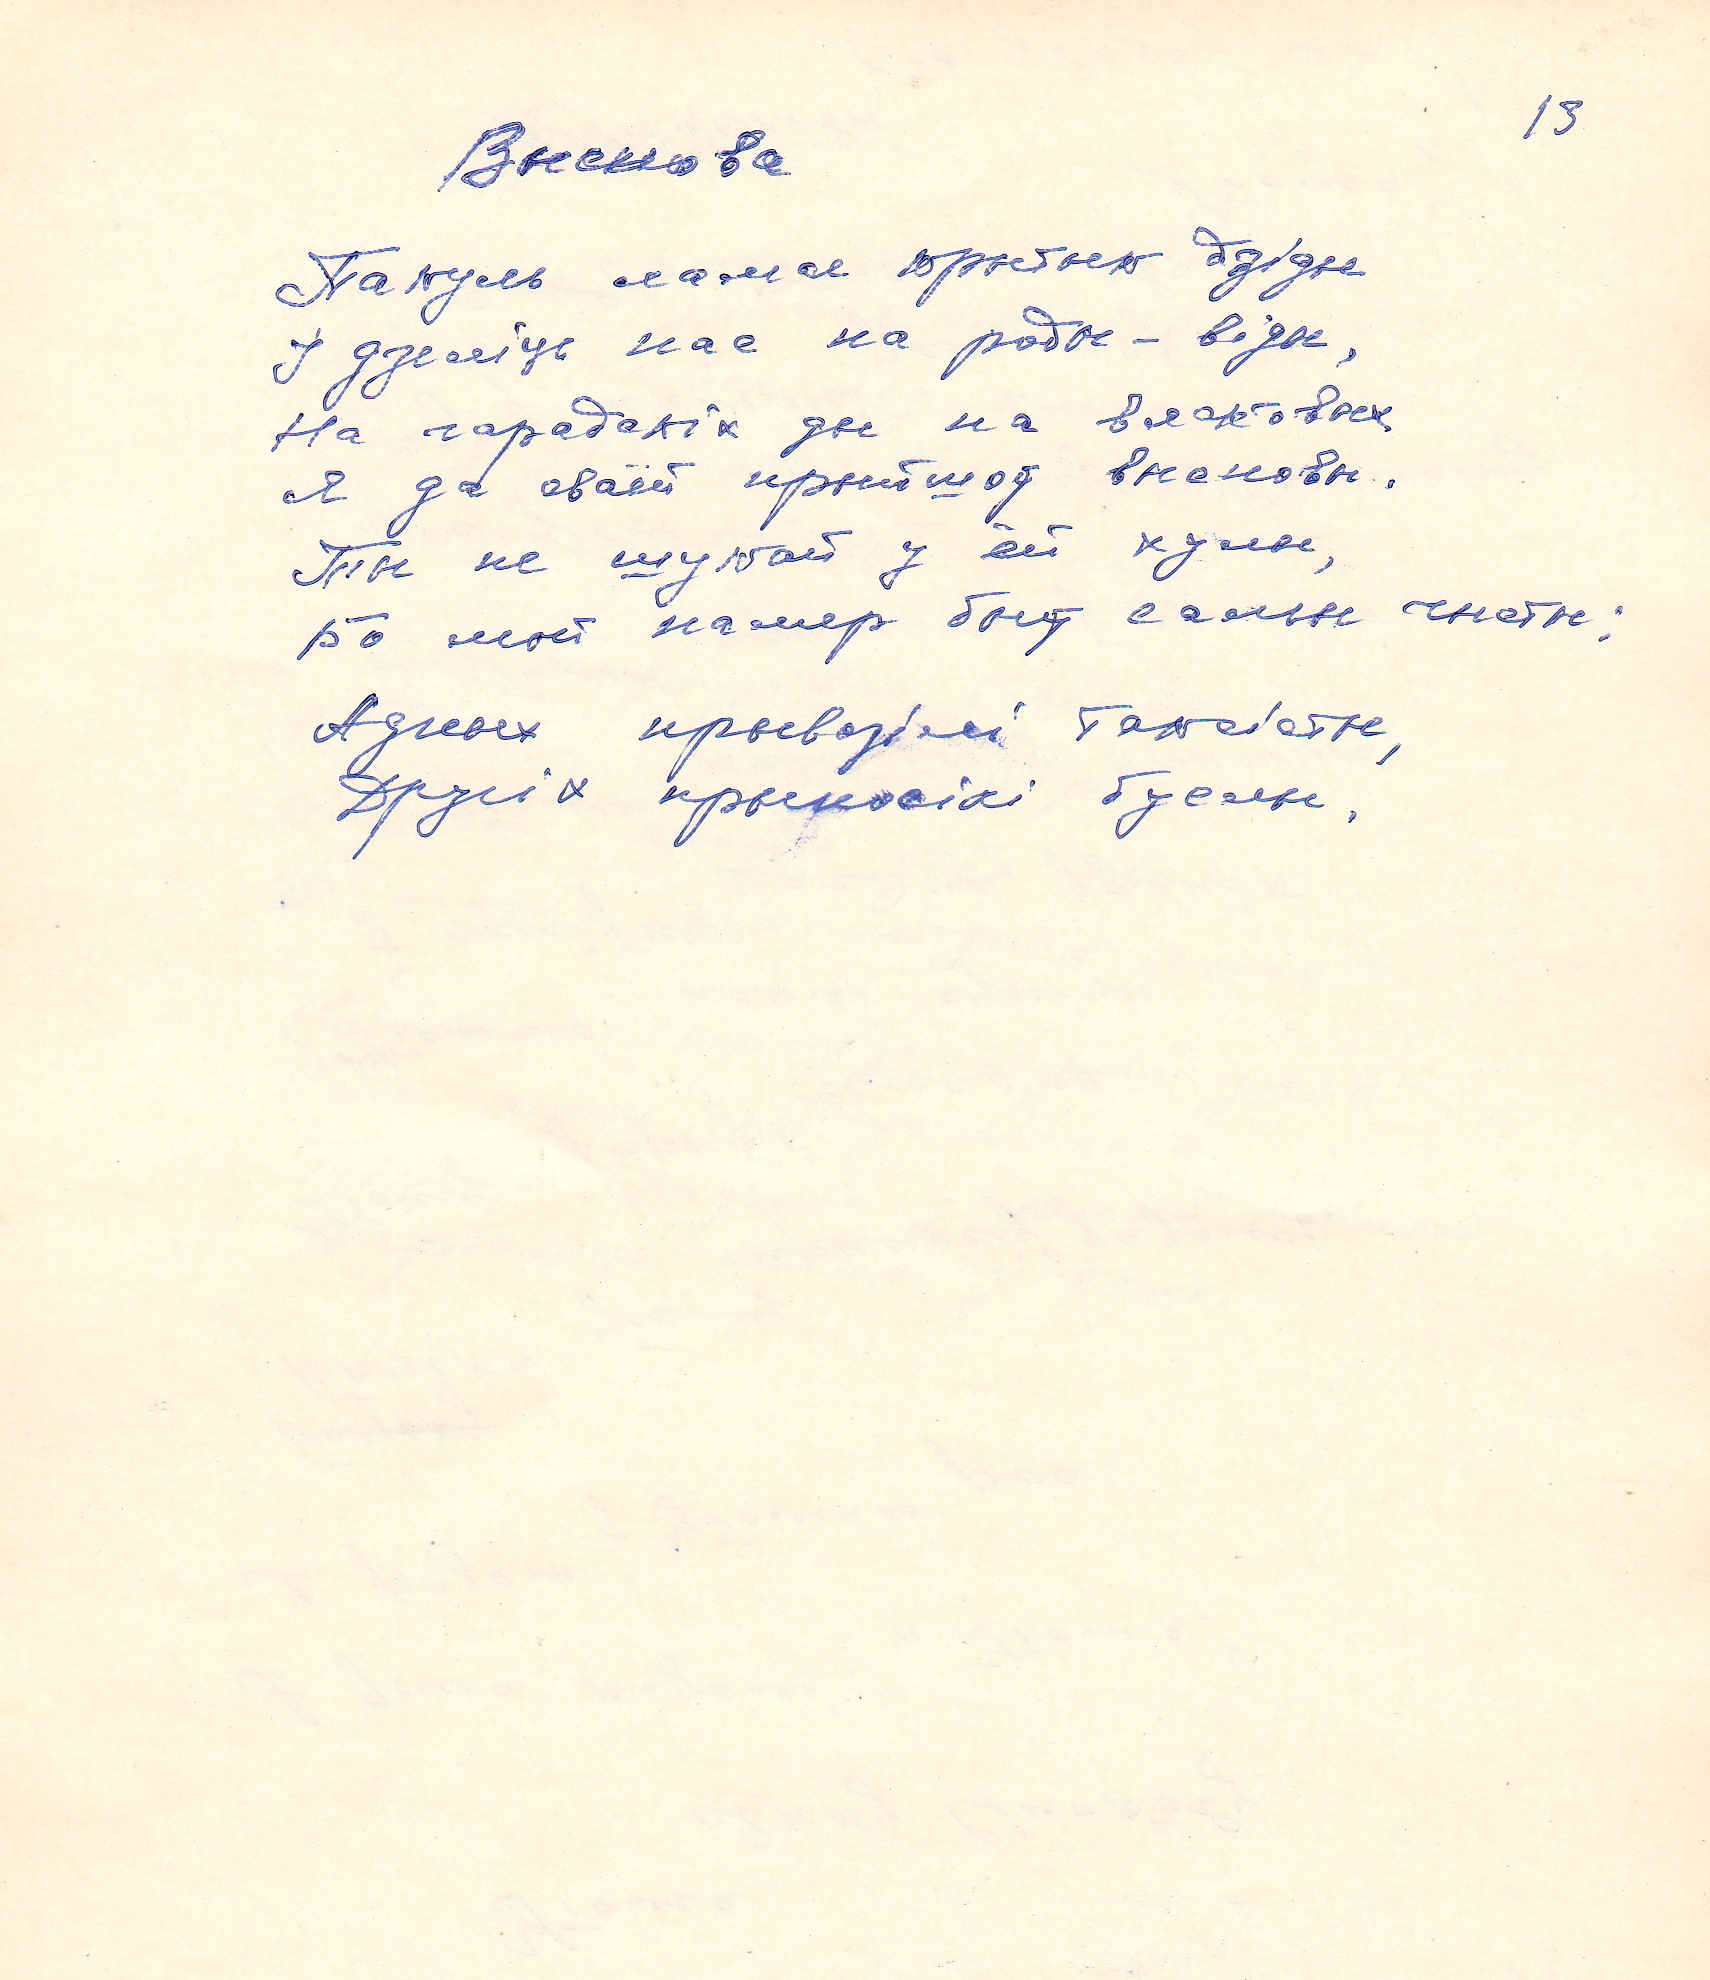 13
Выснова
Пакуль ламаем крытык бздіды
І дзеліць нас на роды - віды,
На гарадскіх ды на вясковых
Я да сваёй прыйшоў высновы.
Ты не шукай у ёй хулы,
Бо мой намер быў самы чысты:
Адных прывозілі таксісты,
Другіх прыносілі буслы.